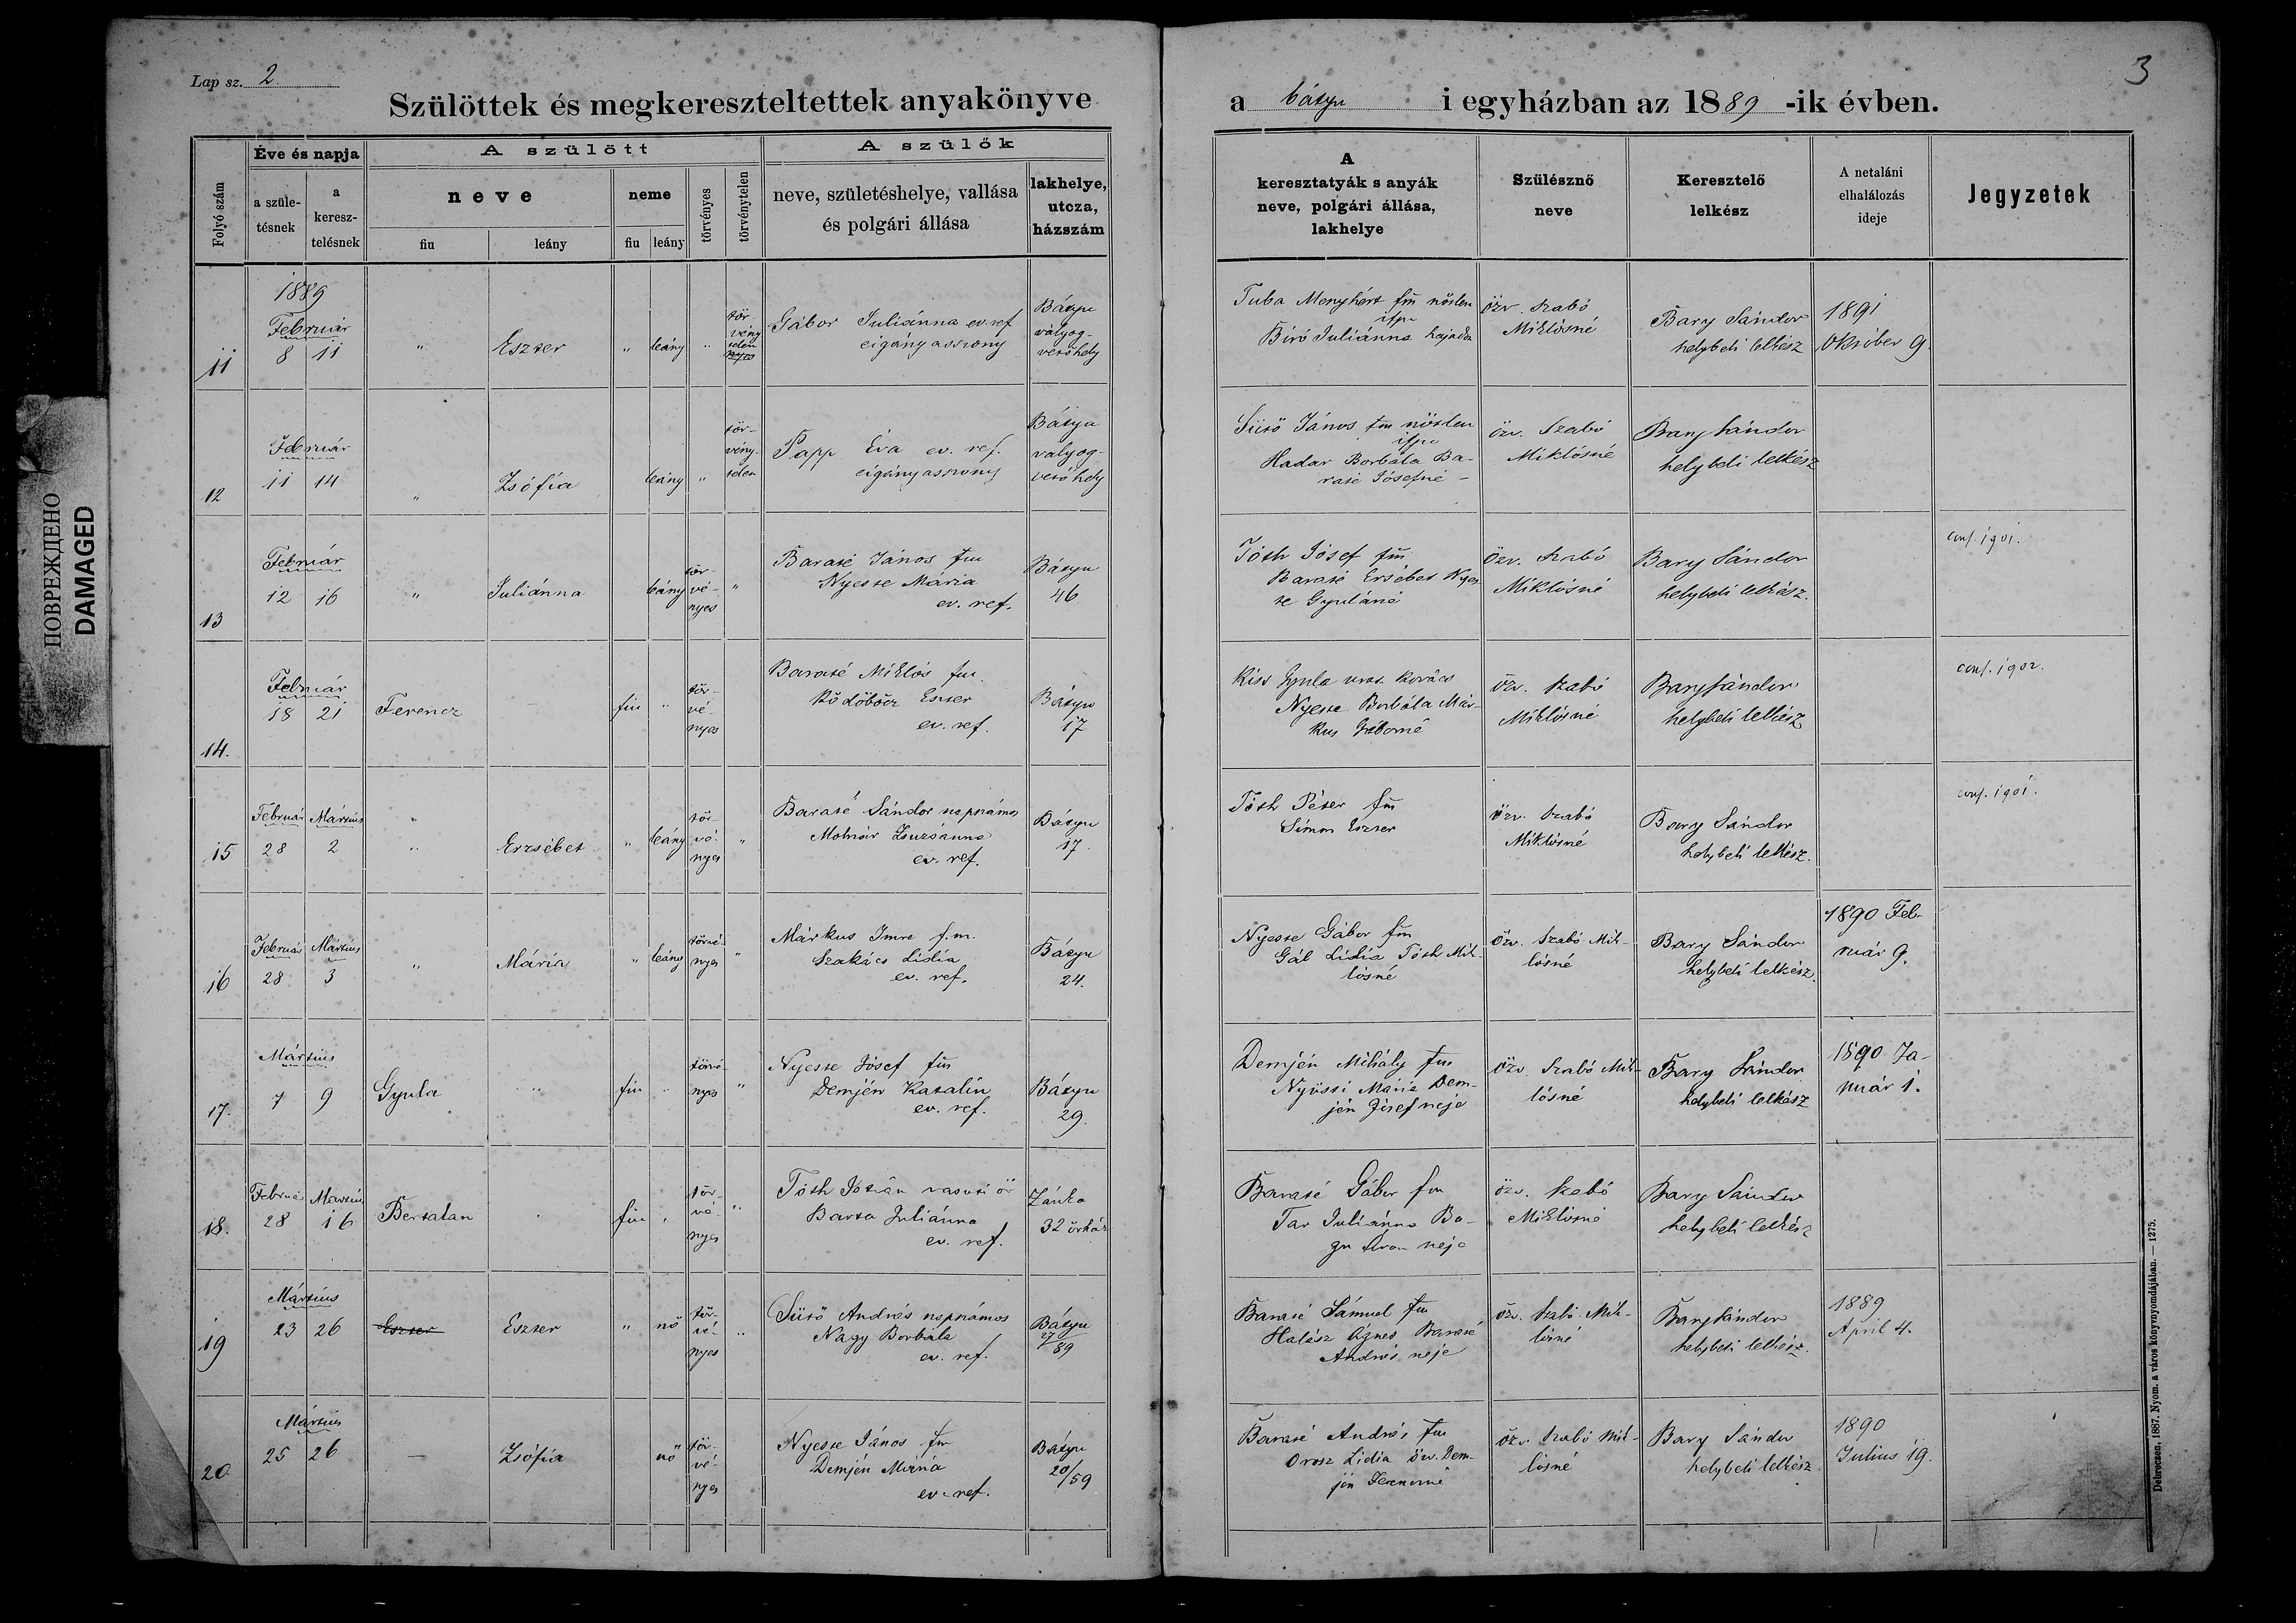 Lap sz. 2.
3
Szülöttek és megkereszteltettek anyakönyve
a bátyu i egyházban az 1889 -ik évben.
ПОВРЕЖДЕНО
DAMAGED
Folyó szám
Éve és napja
a szüle-
tésnek
a
keresz-
telésnek
A szülött
neve
fiu
leány
neme
fiu
leány
törvényes
törvénytelen
A szülők
neve, születéshelye, vallása
és polgári állása
lakhelye,
utcza,
házszám
A
keresztatyák s anyák
neve, polgári állása,
lakhelye
Szülésznő
neve
Keresztelő
lelkész
A netaláni
elhalálozás
ideje
Jegyzetek
1889
Február
11 8 11 " Eszter " leány "
tör-
vény
telen
nyes
Gábor Juliánna ev. ref
czigány asszony
Bátyu
vályog-
vetőhely
Tuba Menyhért fm nőtlen
ifju
Biró Juliánna hajadon
Özv. Szabó
Miklósné
Bary Sándor
helybeli lelkész
1891
Október 9.
Február
12 11 14 " Zsófia leány "
tör-
vény-
telen
Papp Éva ev. ref.
czigány asszony
Bátyu
valyog-
vető hely
Sütő János fm nőtlen
ifju
Hadar Borbála Ba-
raté Jósefné
özv. Szabó
Miklósné
Bary Sándor
helybeli lelkész
Február
13 12 16 " Juliánna leány
tör-
vé-
nyes
"
Baraté János fm
Nyeste Mária
ev. ref.
Bátyu
46
Tóth Jósef fm
Baraté Ersébet Nyes-
te Gyuláné
Özv. Szabó
Miklósné
Bary Sándor
helybeli lelkész.
conf. 1901.
Február
14. 18 21 Ferencz fiu "
tör-
vé-
nyes
Baraté Miklós fm.
Ködöböcz Eszter
ev. ref.
Bátyu
17
Kiss Gyula urat. kovács
Nyeste Borbála Már-
kus Gáborné
Özv. Szabó
Miklósné
Bary Sándor
helybeli lelkész
conf. 1902.
Február Mártius
15 28 2 " Erzsébet " leány
tör-
vé-
nyes
"
Baraté Sándor napszámos
Molnár Zsuzsánna
ev. ref.
Bátyu
17
Tóth Péter fm
Simon Eszter
özv. Szabó
Miklósné
Bary Sándor
helybeli lelkész.
conf. 1901.
Február Mártius
16 28 3 " Mária " leány
törvé-
nyes
"
Márkus Imre f.m.
Szakács Lidia
ev. ref.
Bátyu
24.
Nyeste Gábor fm
Gál Lidia Tóth Mik-
lósné
özv. Szabó Mik-
lósné
Bary Sándor
helybeli lelkész.
1890 Feb-
ruár 9.
Mártius
17. 7 9 Gyula " fiu "
törvé-
nyes
"
Nyeste Jósef fm
Demjén Katalin
ev. ref.
Bátyu
29.
Demjén Mihály fm
Nyüsti Mária Dem-
jén Jósef neje
özv. Szabó Mik-
lósné
Bary Sándor
helybeli lelkész
1890 Ja-
nuár 1.
Február Mártius
18. 28 16 Bertalan fiu "
tör-
vé-
nyes
"
Tóth István vasuti őr
Barta Juliánna
ev. ref.
32 őrház
Baraté Gábor fm
Tar Juliánna
neje
özv. Szabó
Miklósné
Bary Sándor
helybeli lelkész
Mártius
19 23 26 Eszter Eszter " nő
tör-
vé-
nyes
"
Sütő András napszámos
Nagy Borbála
ev. ref.
Bátyu
27/89
Baraté Sámuel fm
Halász Ágnes Baraté
András neje
özv. Szabó Mik-
lósné
Bary Sándor
helybeli lelkész.
1889
April 4.
Mártius
20. 25 26 — Zsófia nő
tör-
vé-
nyes
Nyeste János fm
Demjén Mária
ev. ref.
Bátyu
20/59
Baraté András fm
Orosz Lidia özv. Dem-
jén
özv. Szabó Mik-
lósné
Bary Sándor
helybeli lelkész.
1890
Julius 19.
Debreczen, 1887. Nyom. a város könyvnyomdájában. — 1275.